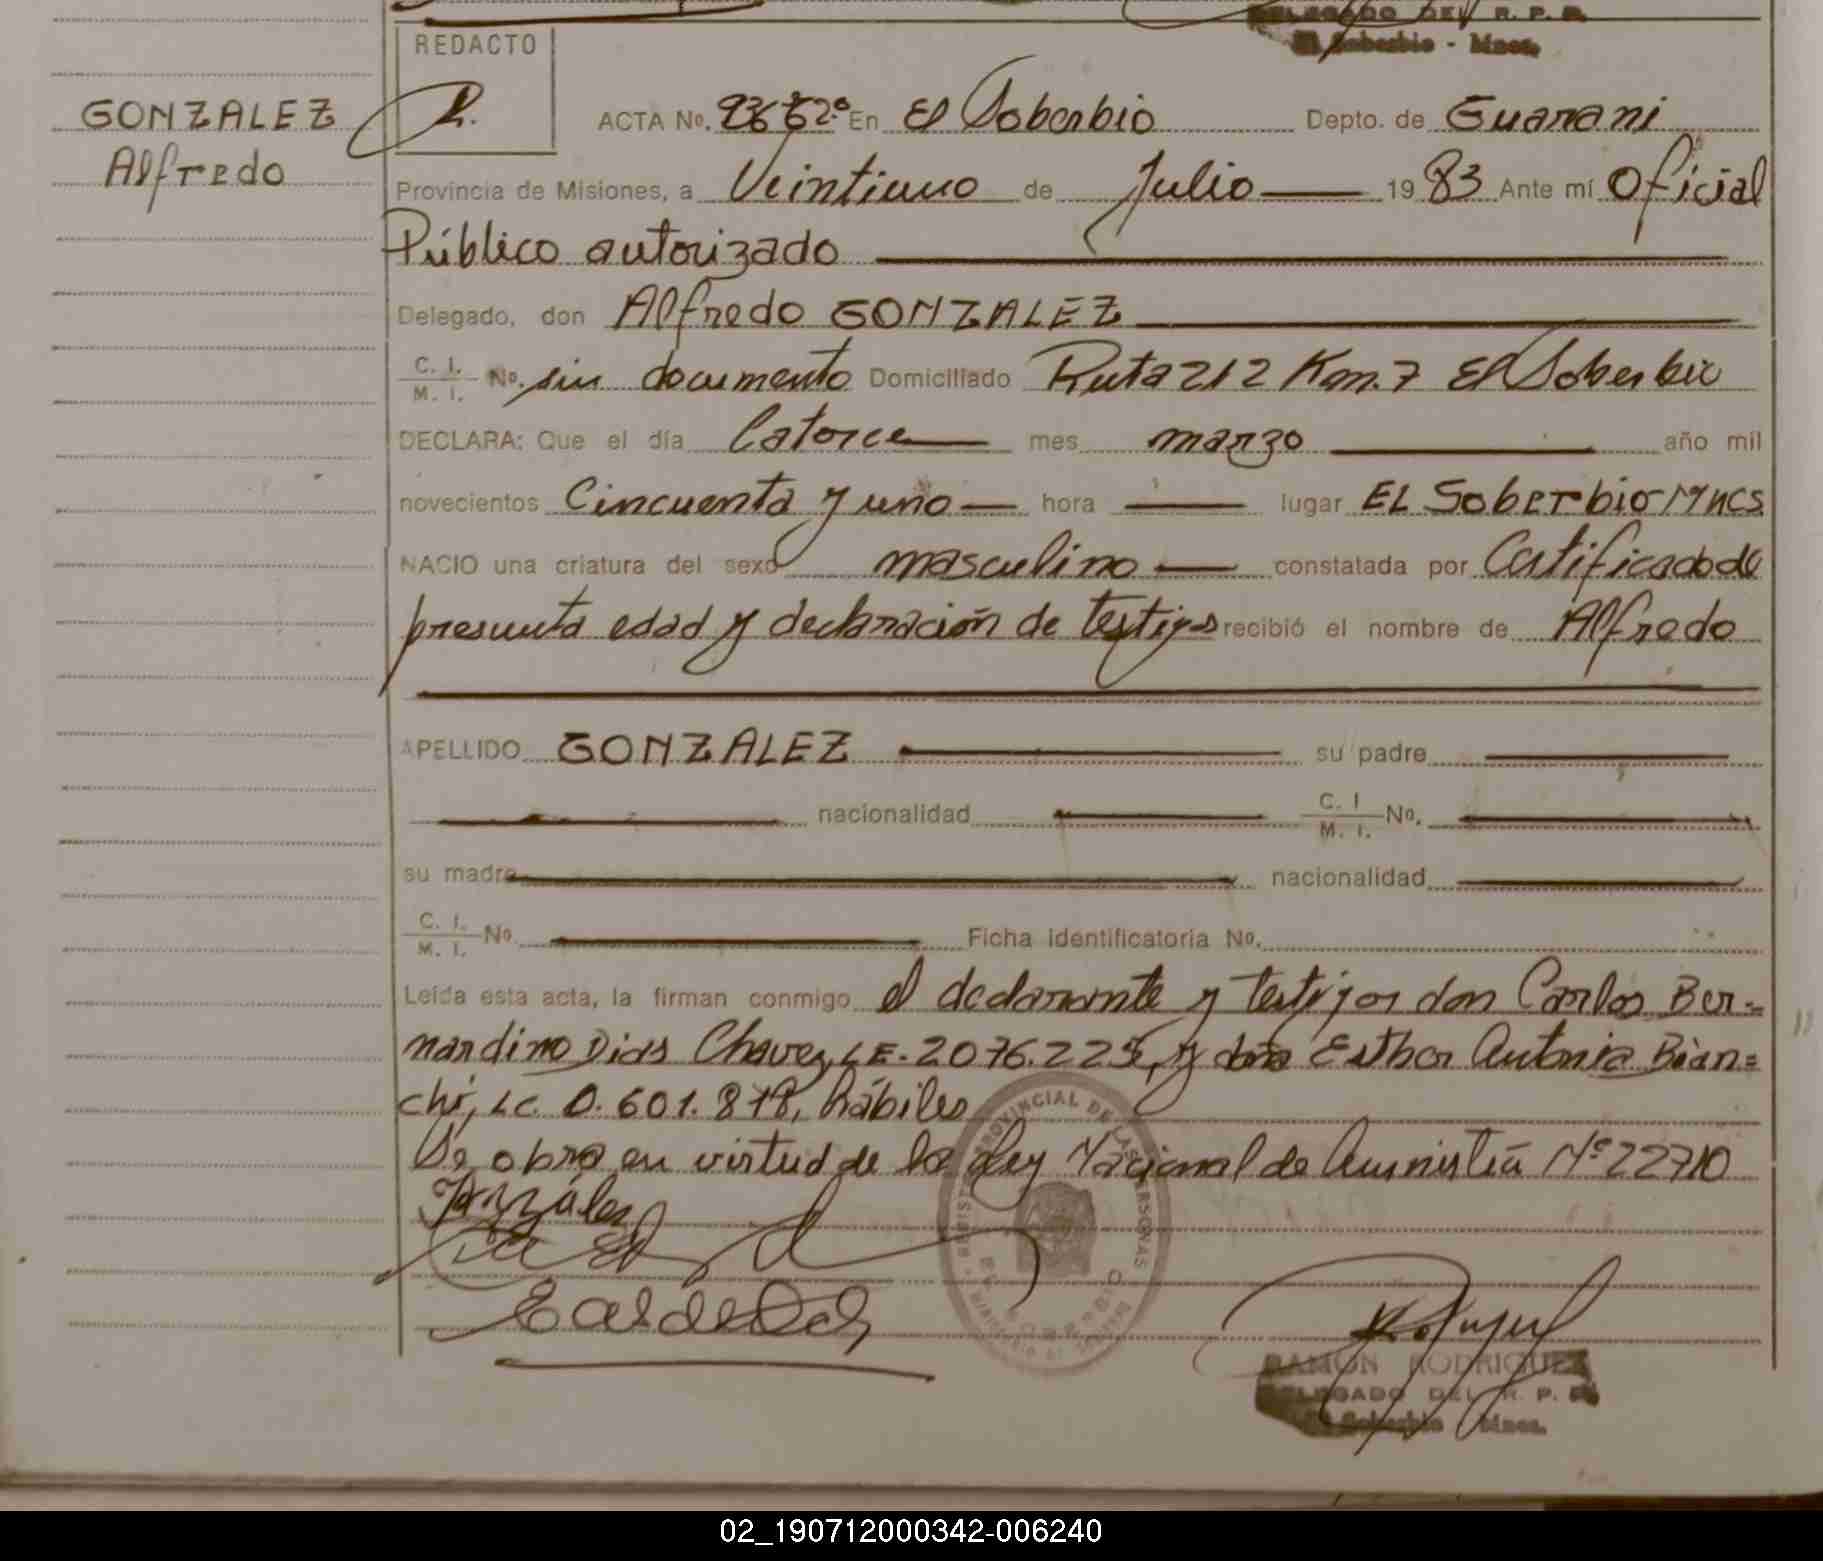 DELEGADO DEL R. P. P.
El Soberbio - Mnes.
REDACTO
GONZALEZ
Alfredo
ACTA No. En El Soberbio Depto. de Guarani
Provincia de Misiones, a Veintiuno de Julio 19 83 Ante mí Oficial
Público autorizado
Delegado, don Alfredo GONZALEZ
C. I. M. I. No. sin documento Domiciliado Ruta 212 Km. 7 El Soberbio
DECLARA: Que el día Catorce mes marzo año mil
novecientos Cincuenta y uno hora lugar EL Soberbio Mnes
NACIO una criatura del sexo masculino constatada por Certificado de
presunta edad y declaración de testigos recibió el nombre de Alfredo
APELLIDO GONZALEZ su padre
nacionalidad C. I M. I. No.
su madre nacionalidad
C. I. M. I. No Ficha Identificatoria No.
Leída esta acta, la firman conmigo el declarante y testigos don Carlos Ber=
nardino Dias Chavez, LE. 2076.225, y doña Esther Antonia Bian=
chi, LC. 0.601.818, hábiles
Se obra en virtud de la Ley Nacional de Amnistía Nº 22710
González
REGISTRO PROVINCIAL DE LAS PERSONAS
EL SOBERBIO
RAMON RODRIGUEZ
DELEGADO DEL R. P. P.
El Soberbio Mnes.
02_190712000342-006240